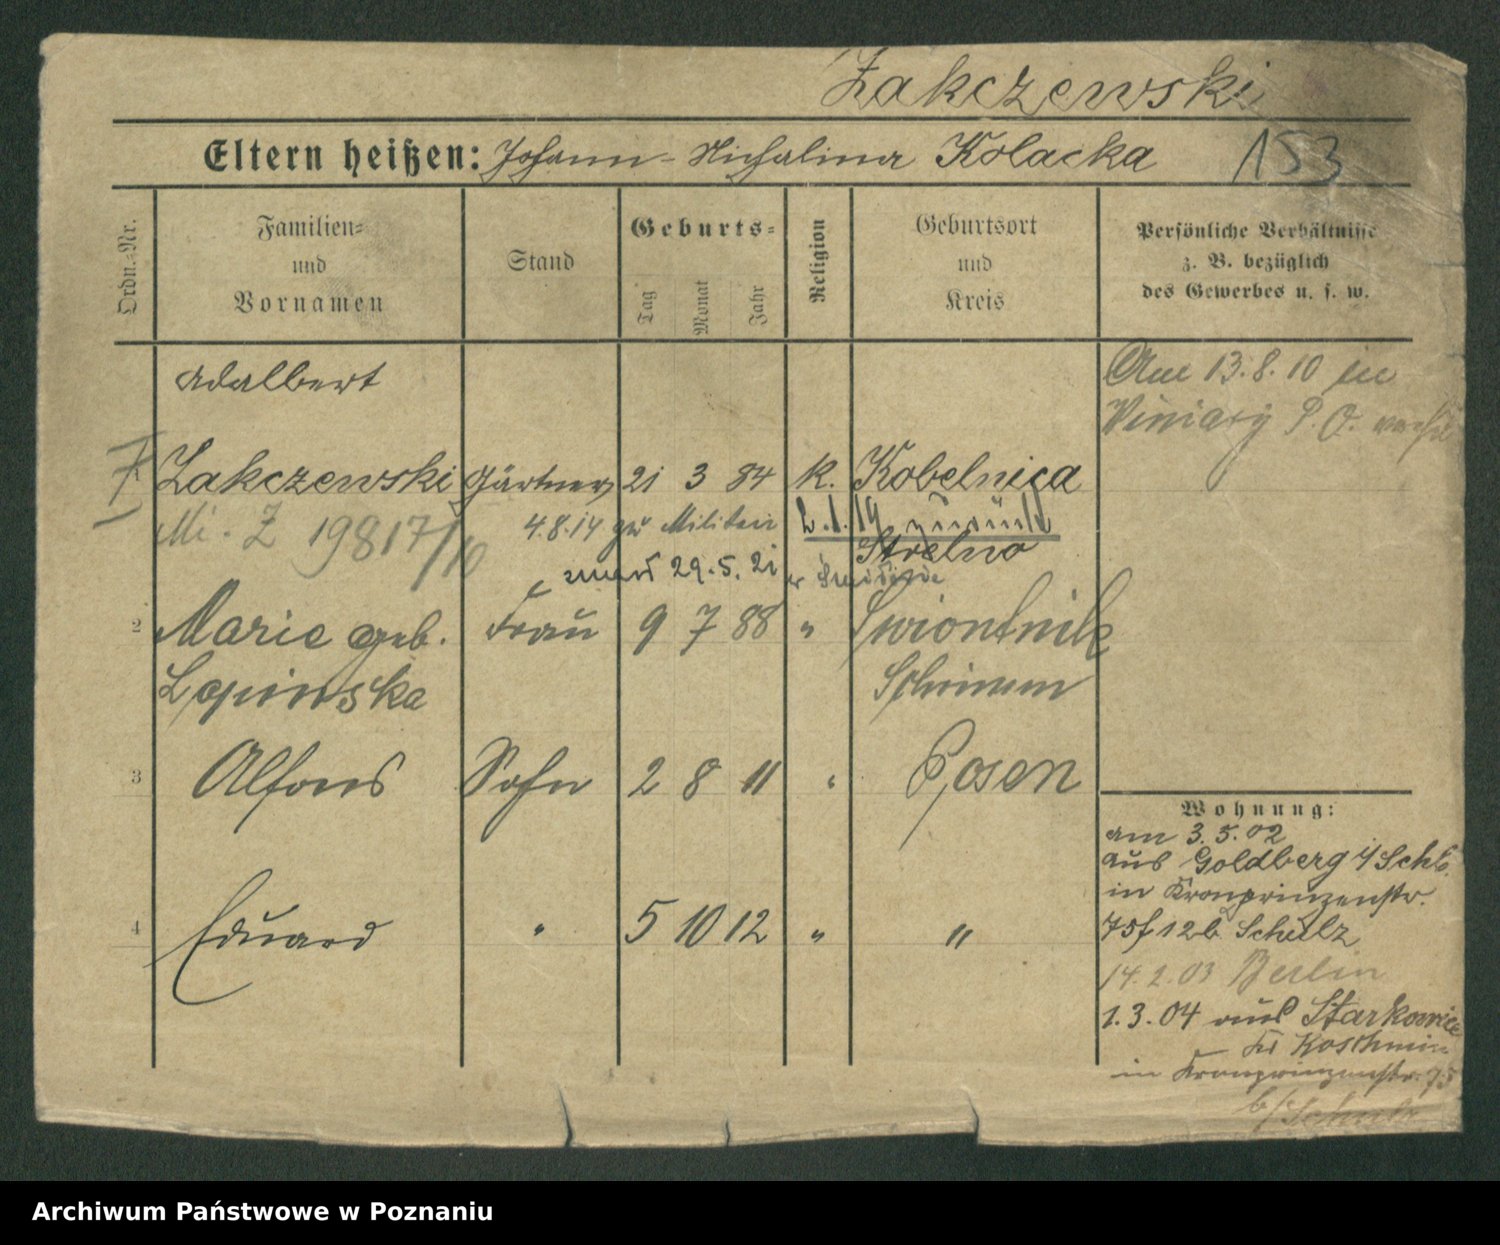 Zakczewski
Eltern heißen: Johann - Michalina Kolacka 153
Ordn.-Nr.
Familien-
und
Vornamen
Stand
Geburts-
Tag
Monat
Jahr
Religion
Geburtsort
und
Kreis
Persönliche Verhältnisse
z. B. bezüglich
des Gewerbes u. s. w.
Adalbert
Zakczewski Gärtner 21 3 84 k. Kobelnica
Strelno
Mi. Z 19817/10
4.8.14 zu Militär 2.1.19 zurück
29.5.21
2 Marie geb. Frau 9 7 88 " Swiontnik
Lepinska Schrimm
3 Alfons Sohn 2 8 11 " Posen
4 Eduard " 5 10 12 " "
Am 13.8.10 in
Winiary P. O.
Wohnung:
am 3.5.02
aus Goldberg i/Schl.
in Kronprinzenstr.
75 f 12 b. Schulz
14.2.03 Berlin
1.3.04 aus Starkowice
Kr Koschmin
in Kronprinzenstr. 75
b/Schulz
Archiwum Państwowe w Poznaniu